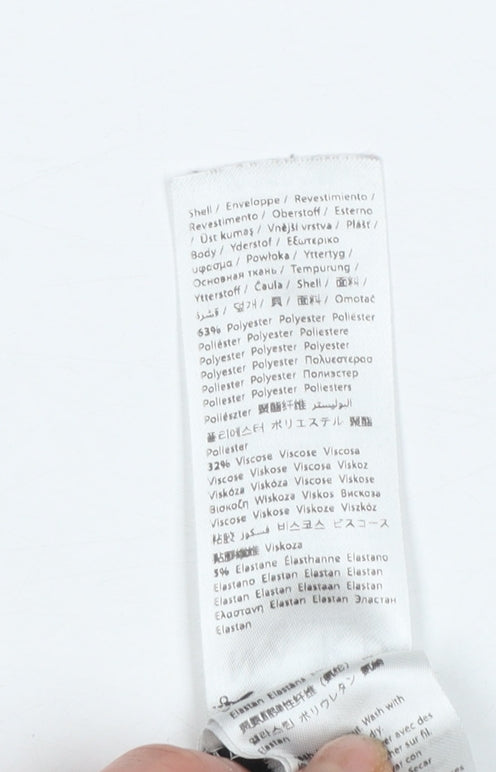 Shell / Enveloppe / Revestimiento /
Revestimento / Oberstoff / Esterno
/ Üst kumaş / Vnější vrstva / Plášť /
Body / Yderstof / Εξωτερικο
υφασμα / Powłoka / Yttertyg /
Основная ткань / Tempurung /
Ytterstoff / Čaula / Shell / 面料 /
قشرة / 덮개 / 貝 / 面料 / Omotač
63% Polyester Polyester Poliéster
Poliéster Polyester Poliestere
Polyester Polyester Polyester
Polyester Polyester Πολυεστερας
Poliester Polyester Полиэстер
Poliester Polyester Poliesters
Poliészter 聚酯纤维 البوليستر
폴리에스터 ポリエステル 聚酯
Poliester
32% Viscose Viscose Viscosa
Viscose Viskose Viscosa Viskoz
Viskóza Viskóza Viscose Viskose
Βισκοζη Wiskoza Viskos Вискоза
Viscose Viskose Viskoze Viszkóz
粘胶 فسكوز 비스코스 ビスコース
粘膠纖維 Viskoza
5% Elastane Élasthanne Elastano
Elastano Elastan Elastan Elastan
Elastan Elastan Elastaan Elastan
Ελαστανη Elastan Elastan Эластан
Elastan
Elastan Elastāns
ポリウレタン
Elastan
Wash with
dry.
avec des
sur fil.
con
Secar